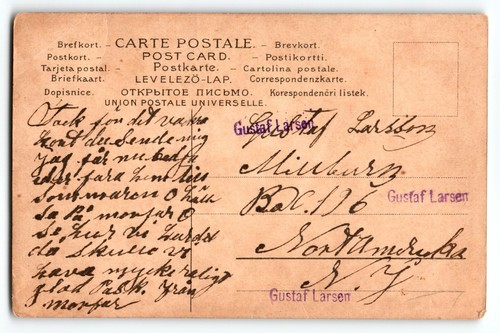 Brefkort. – CARTE POSTALE. – Brevkort.
Postkort. – POST CARD. – Postikortti.
Tarjeta postal. – Postkarte. – Cartolina postale.
Briefkaart. – LEVELEZÖ-LAP. – Correspondenzkarte.
Dopisnice. – ОТКРЫТОЕ ПИСЬМО. – Korespondenční listek.
UNION POSTALE UNIVERSELLE.
Tack för det vackra
kort du sende mig
jag får nu bedja
eder fara hem till
sommaren O häll
sa På morfar O
se hur vi
da skulle vi
hava mycke roligt
glad Pask. från
morfar
Gustaf Larsson
Gustaf Larsen
Millburn
Box. 196
Gustaf Larsen
Nortamerika
N. J
Gustaf Larsen